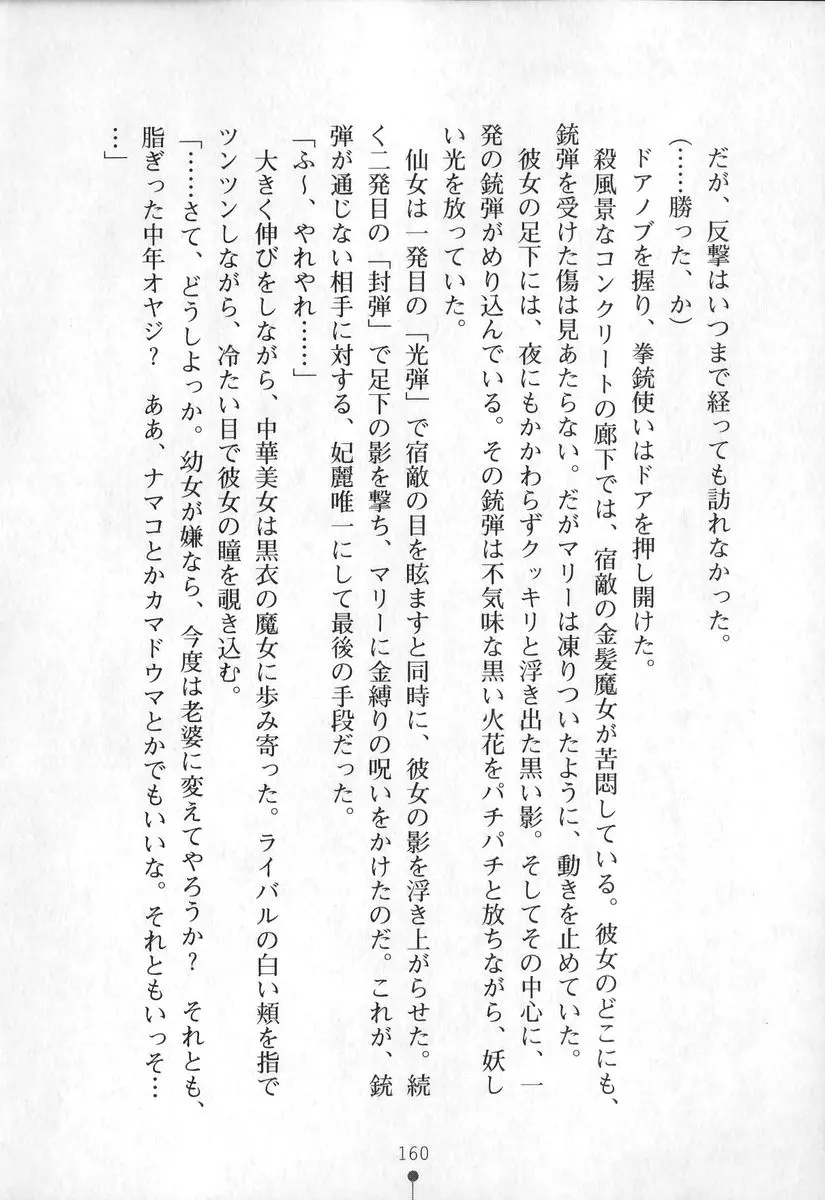 だが、反撃はいつまで経っても訪れなかった。
(……勝った、か)
ドアノブを握り、拳銃使いはドアを押し開けた。
殺風景なコンクリートの廊下では、宿敵の金髪魔女が苦悶している。彼女のどこにも、
銃弾を受けた傷は見あたらない。だがマリーは凍りついたように、動きを止めていた。
彼女の足下には、夜にもかかわらずクッキリと浮き出た黒い影。そしてその中心に、一
発の銃弾がめり込んでいる。その銃弾は不気味な黒い火花をパチパチと放ちながら、妖し
い光を放っていた。
仙女は一発目の「光弾」で宿敵の目を眩ますと同時に、彼女の影を浮き上がらせた。続
く二発目の「封弾」で足下の影を撃ち、マリーに金縛りの呪いをかけたのだ。これが、銃
弾が通じない相手に対する、妃麗唯一にして最後の手段だった。
「ふ～、やれやれ……」
大きく伸びをしながら、中華美女は黒衣の魔女に歩み寄った。ライバルの白い頬を指で
ツンツンしながら、冷たい目で彼女の瞳を覗き込む。
「……さて、どうしよっか。幼女が嫌なら、今度は老婆に変えてやろうか？　それとも、
脂ぎった中年オヤジ？　ああ、ナマコとかカマドウマとかでもいいな。それともいっそ…
…」
160